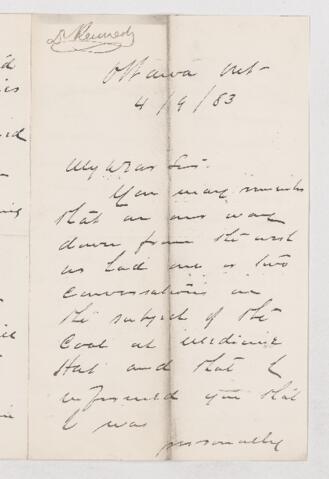 Dr Kennedy
Ottawa Ont
4/9/83
My Dear Sir.
You may remember
that on our way
down from the west
we had one or two
conversations on
the subject of the
Coal at Medicine
Hat and that I
informed you that
I was
personally